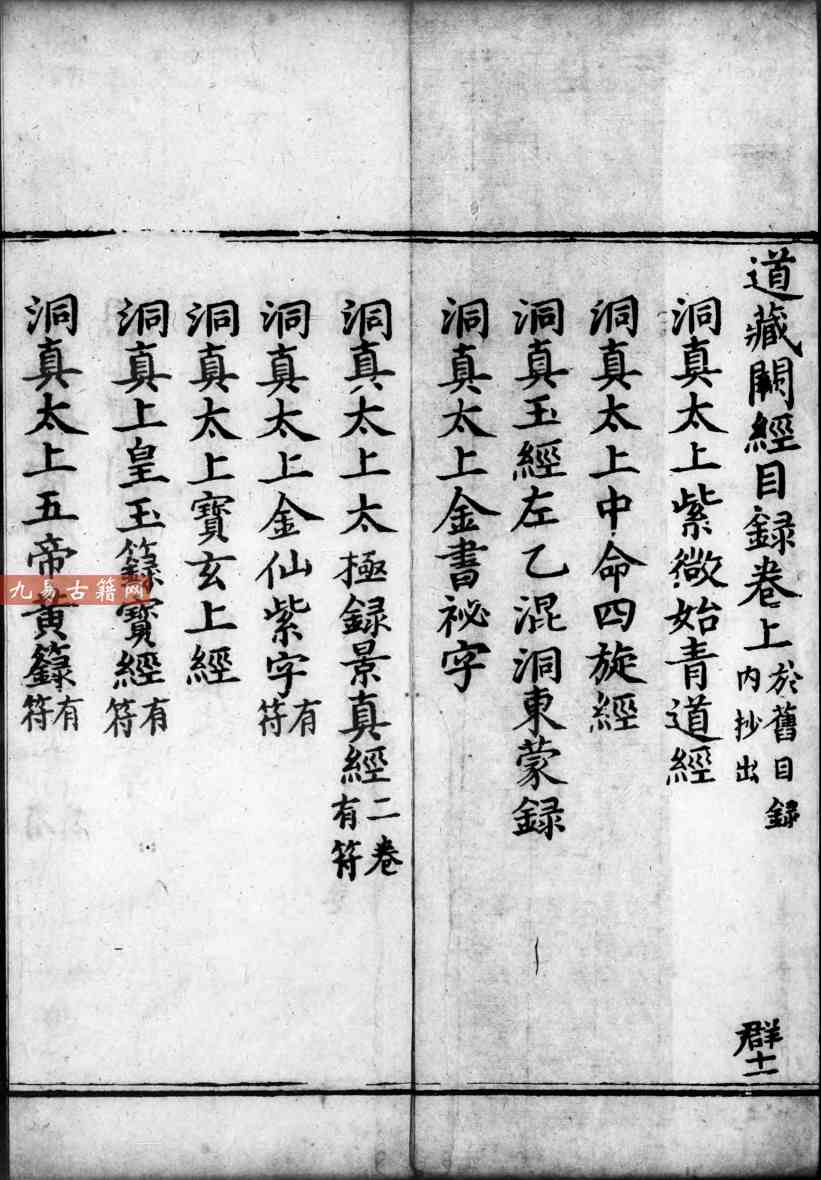 道藏闕經目録卷上 於舊目録内抄出
群十一
洞真太上紫微始青道經
洞真太上中命四旋經
洞真玉經左乙混洞東蒙録
洞真太上金書祕字
洞真太上太極録景真經 二卷有符
洞真太上金仙紫字 有符
洞真太上寶玄上經
洞真上皇玉籙寶經 有符
洞真太上五帝黄籙 有符
九易古籍网